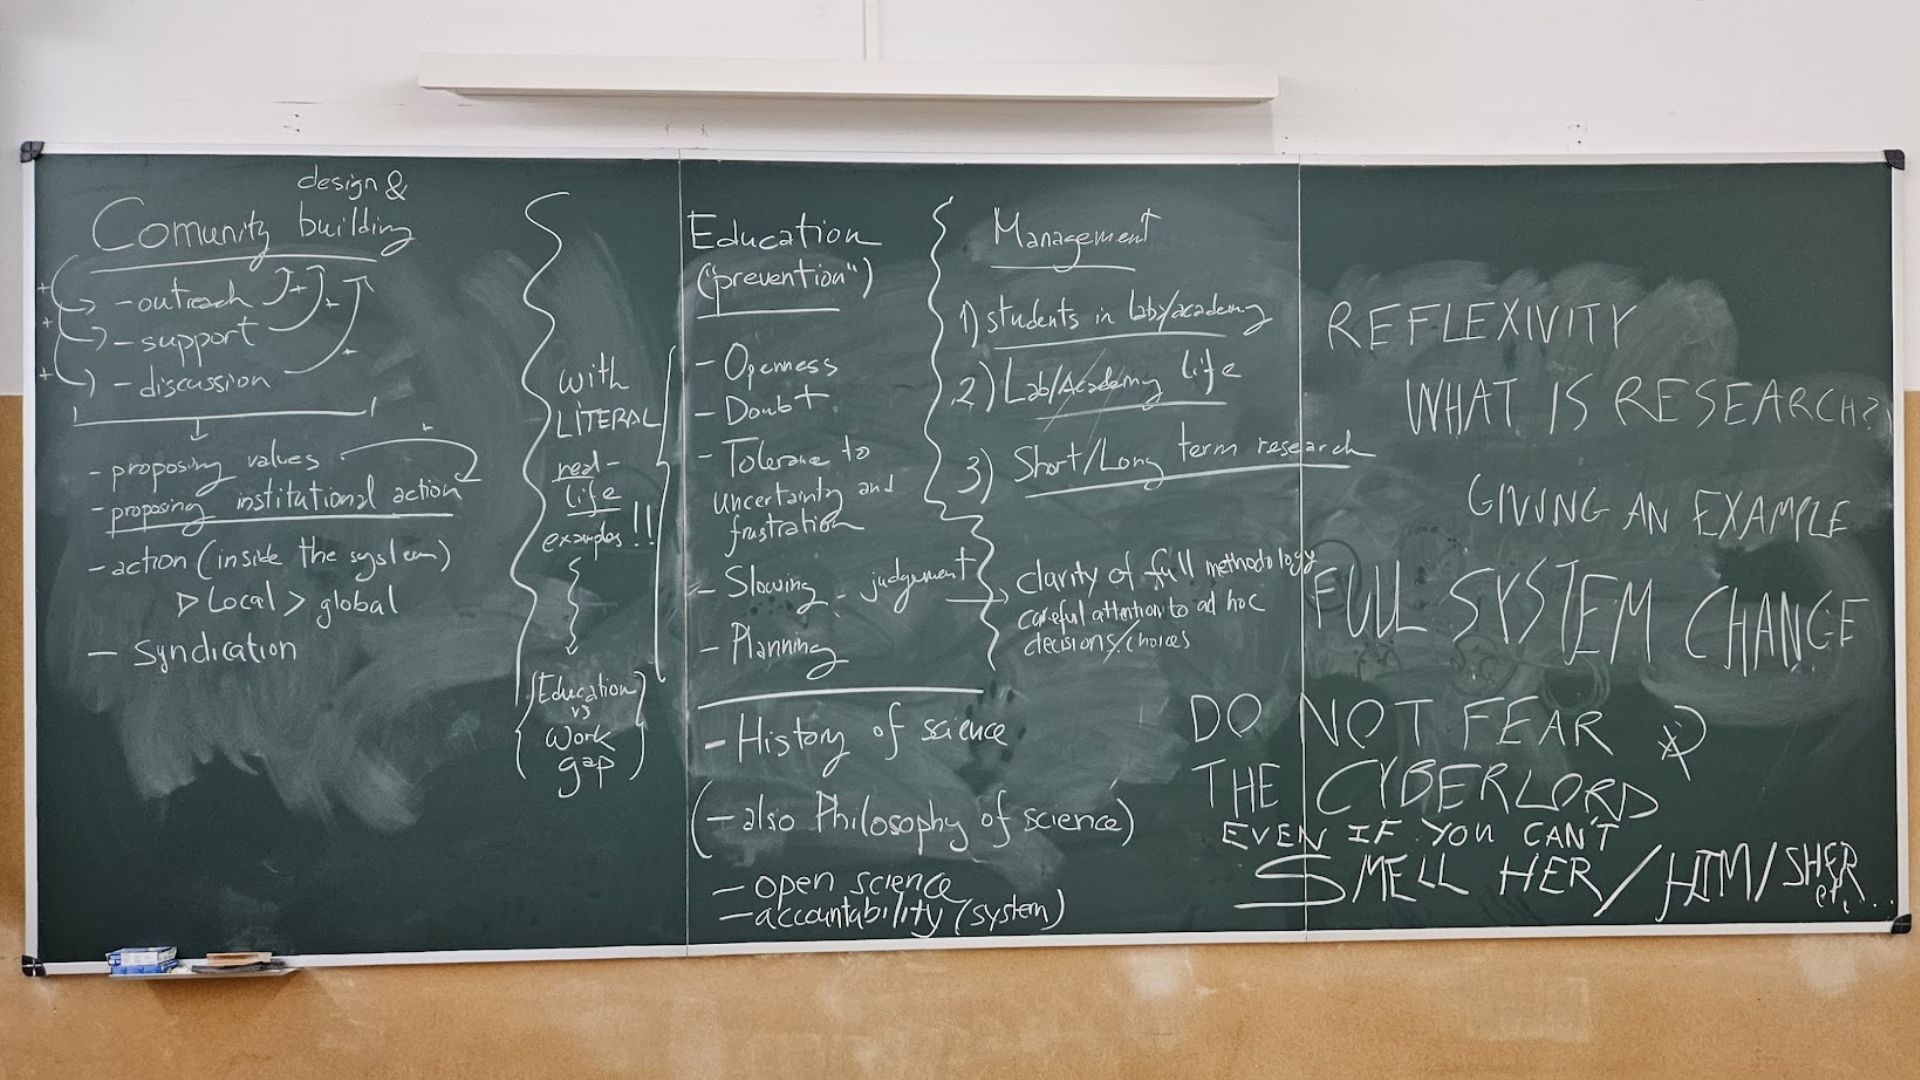 design &
Comunity building
- outreach
- support
- discussion
- proposing values
- proposing institutional action
- action (inside the system)
▷ Local > global
- Syndication
with
LITERAL
real-
life
examples!!
(Education
vs
Work
gap)
Education
("prevention")
- Openness
- Doubt
- Tolerance to
uncertainty and
frustration
- Slowing - judgement
- Planning
- History of science
(- also Philosophy of science)
- open science
- accountability (system)
Management
1) students in lab/academy
2) Lab/Academy life
3) Short/Long term research
clarity of full methodology
careful attention to ad hoc
decisions/choices
REFLEXIVITY
WHAT IS RESEARCH?
GIVING AN EXAMPLE
FULL SYSTEM CHANGE
DO NOT FEAR
THE CYBERLORD
EVEN IF YOU CAN'T
SMELL HER/HIM/SHER
etc...